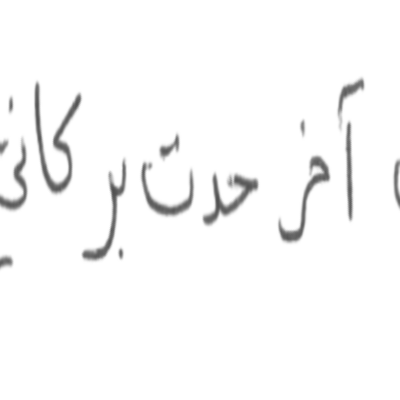 آخر حدث بركاني